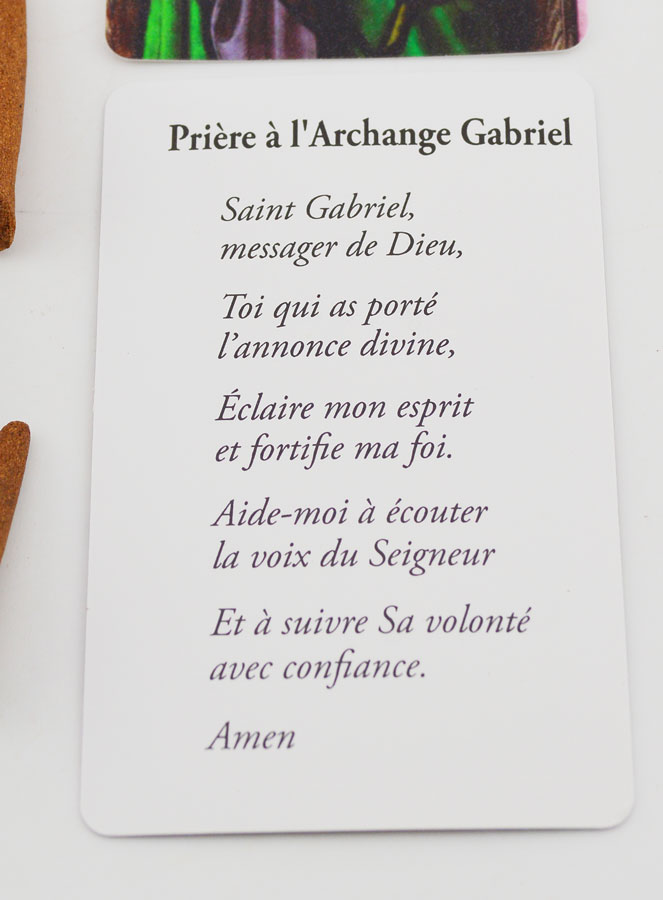 Prière à l'Archange Gabriel
Saint Gabriel,
messager de Dieu,
Toi qui as porté
l’annonce divine,
Éclaire mon esprit
et fortifie ma foi.
Aide-moi à écouter
la voix du Seigneur
Et à suivre Sa volonté
avec confiance.
Amen